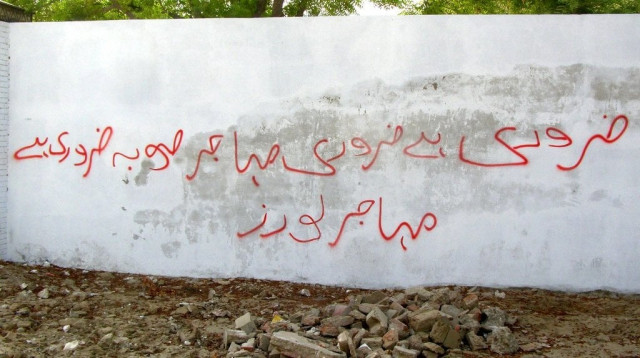 ضروری ہے ضروری مہاجر صوبہ ضروری ہے
مہاجر لورز